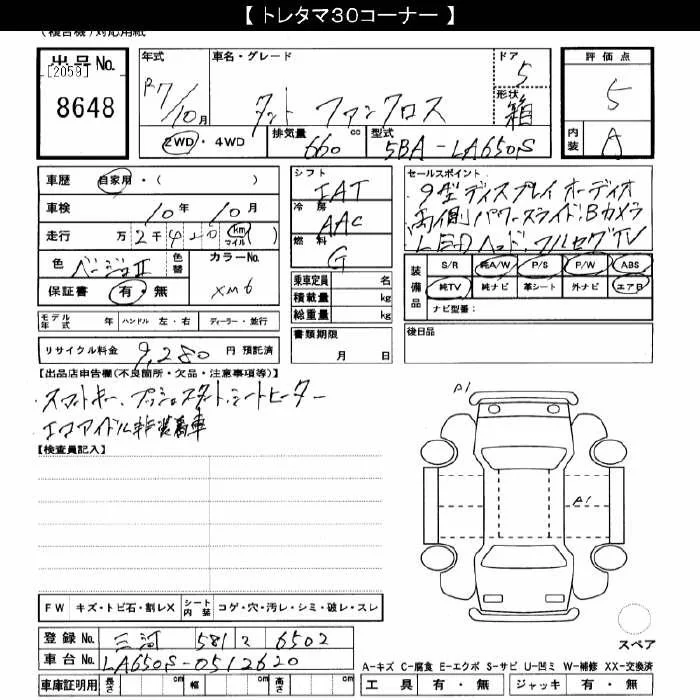 【 トレタマ30コーナー 】
(複合機)対応用紙
出品No.
[2059]
8648
年式 車名・グレード ドア 評価点
R7/10月 タント ファンクロス 5 5
形状 箱
2WD ・ 4WD 排気量 660 cc 型式 5BA-LA650S 内装 A
車歴 自家用・( )
車検 10年 10月
走行 万2千420 km マイル
色 ベージュII 色替 カラーNo.
保証書 有・無 XM6
シフト IAT
冷房 AAC
燃料 G
乗車定員 名
積載量 kg
総重量 kg
セールスポイント
・9型ディスプレイオーディオ
・両側パワースライド・Bカメラ
・LEDヘッド・フルセグTV
装備品 S/R 純A/W P/S P/W ABS
純TV 純ナビ 革シート 外ナビ エアB
ナビ型番:
モデル年式 年 ハンドル 左・右 ディーラー・並行
書類期限
月 日
後日品
リサイクル料金 9,280 円 預託済
【出品店申告欄(不良箇所・欠品・注意事項等)】
・スマートキー、プッシュスタート、シートヒーター
エコアイドル非装着車
【検査員記入】
A1
A1
FW キズ・トビ石・割レX シート内装 コゲ・穴・汚レ・シミ・破レ・スレ
登録No. 三河 581 ミ 6502
車台No. LA650S-0512620
車庫証明用 長さ cm 幅 cm 高さ cm
スペア
A-キズ C-腐食 E-エクボ S-サビ U-凹ミ W-補修 XX-交換済
工具 有・無 ジャッキ 有・無